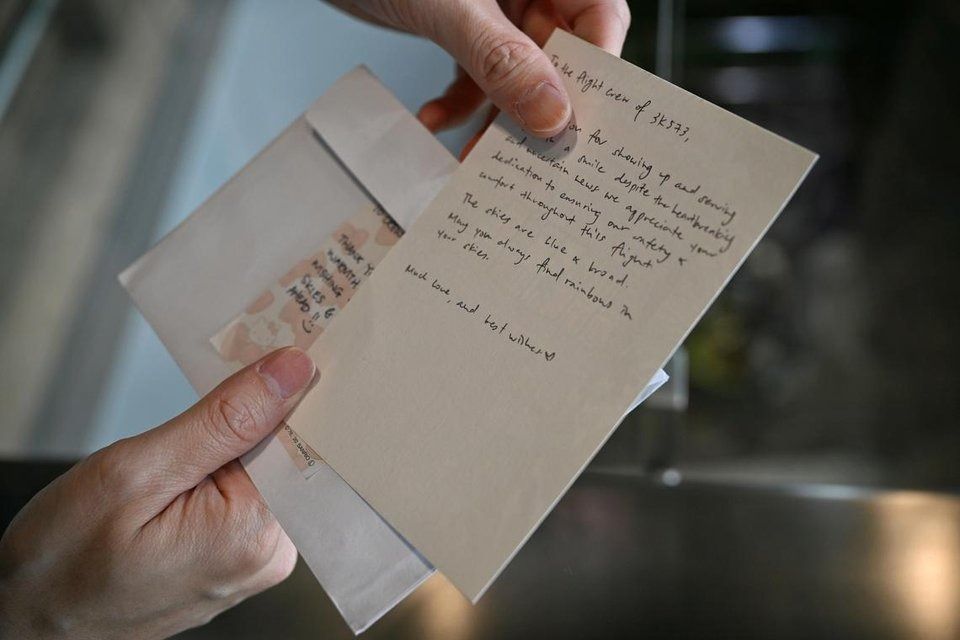 To the flight crew of 3K573,
you for showing up and serving
a smile despite the heartbreaking
and uncertain news. We appreciate your
dedication to ensuring our safety &
comfort throughout this flight.
The skies are blue & broad.
May you always find rainbows in
your skies.
Much love, and best wishes ♡
THANK
WARMTH
WISHING
SKIES
AHEAD !! :)